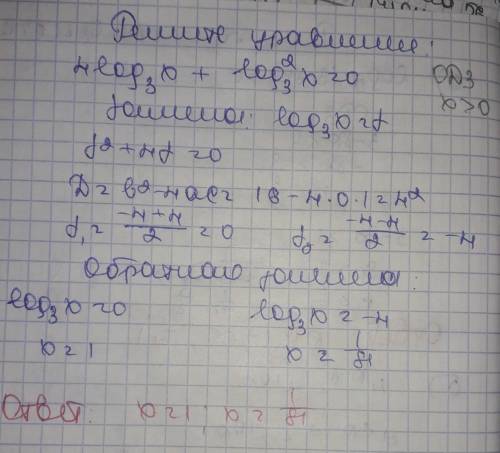 Решите уравнение:
4log₃x + log₃²x = 0 ОДЗ
x>0
Замена: log₃x = t
t² + 4t = 0
D = b² - 4ac = 16 - 4·0·1 = 4²
t₁ = (-4+4)/2 = 0 t₂ = (-4-4)/2 = -4
Обратная замена:
log₃x = 0 log₃x = -4
x = 1 x = 1/81
Ответ: x = 1, x = 1/81